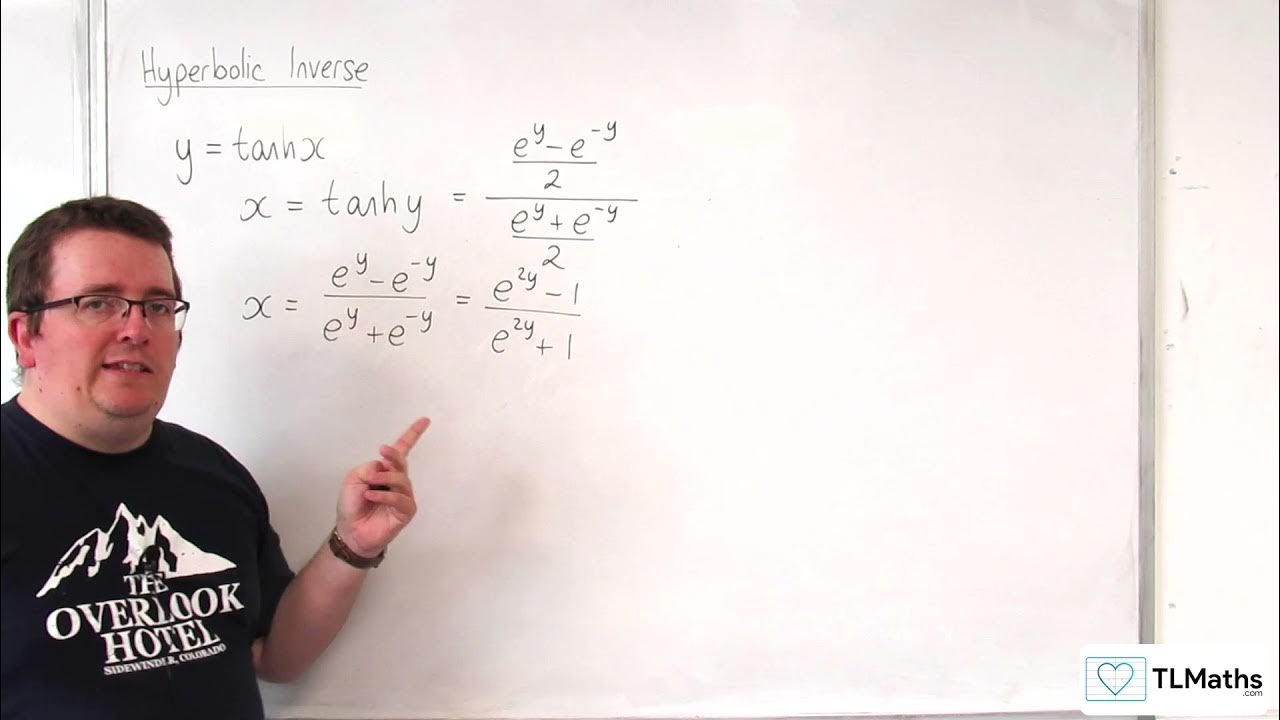 Hyperbolic Inverse
y = tanhx
x = tanhy = ((e^y - e^-y)/2)/((e^y + e^-y)/2)
x = (e^y - e^-y)/(e^y + e^-y) = (e^2y - 1)/(e^2y + 1)
THE
OVERLOOK
HOTEL
SIDEWINDER, COLORADO
TLMaths
.com